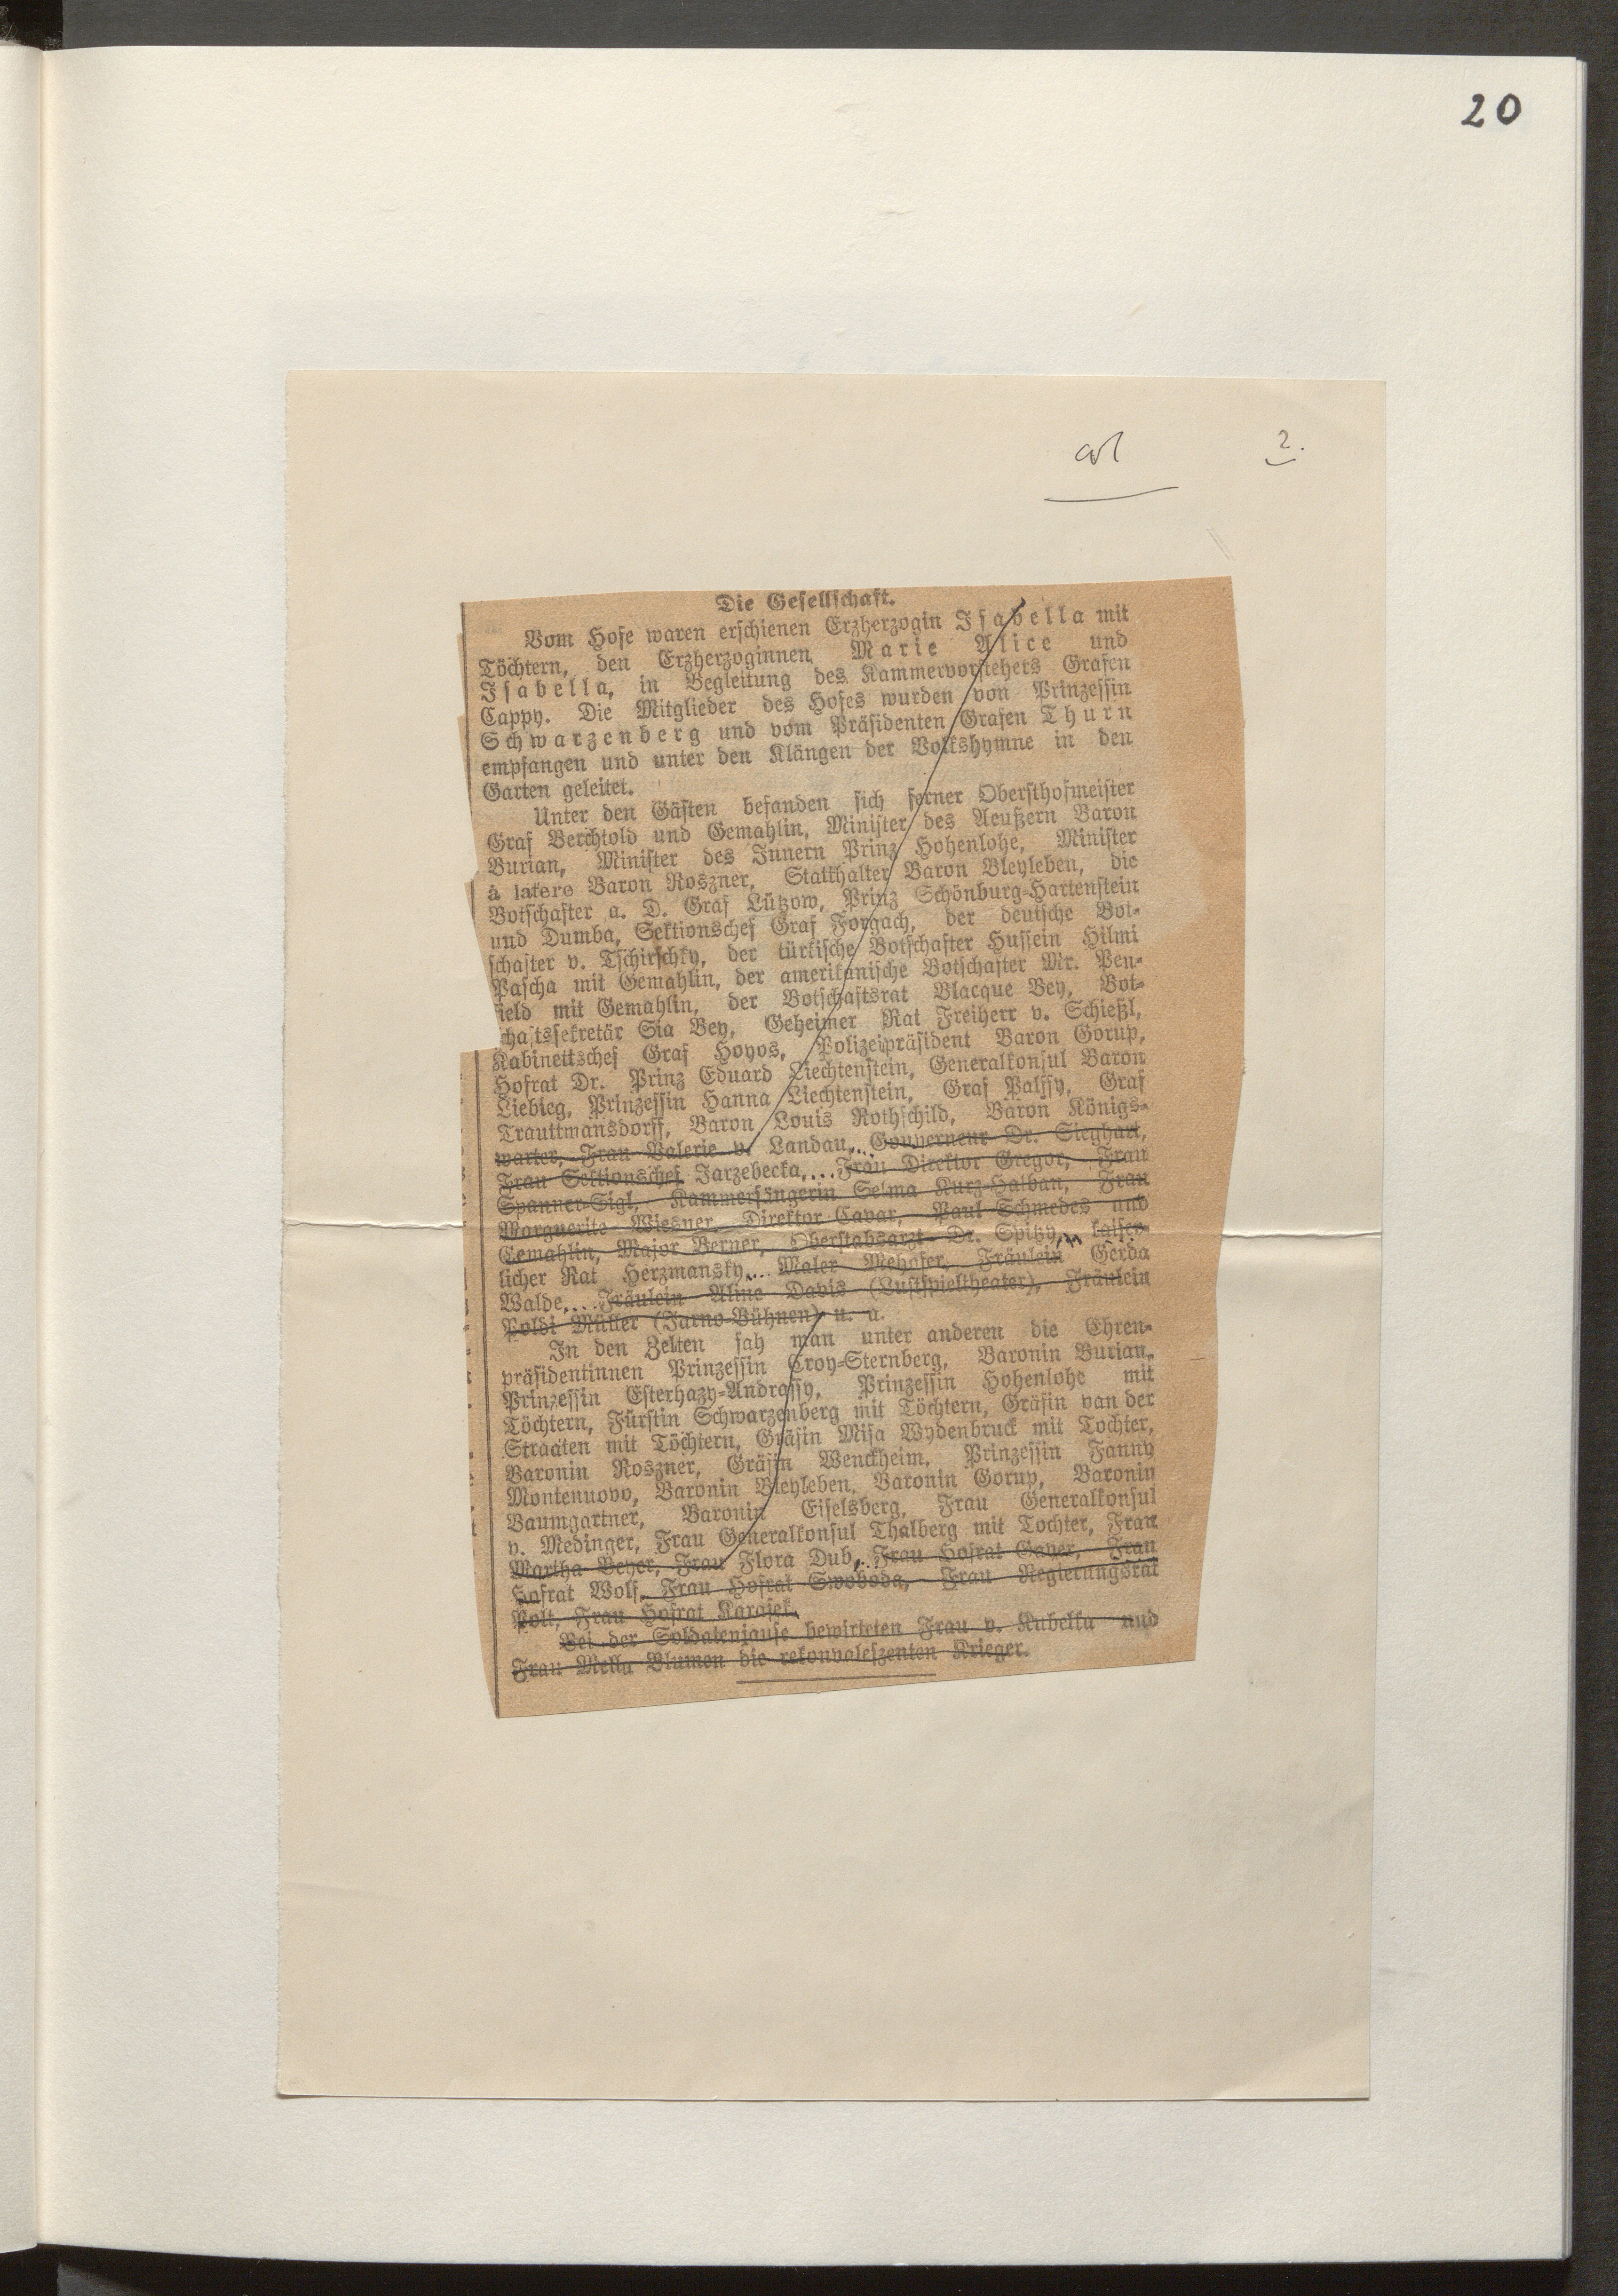 20
2.
Die Gesellschaft.
Vom Hofe waren erschienen Erzherzogin Isabella mit
Töchtern, den Erzherzoginnen Marie Alice und
Isabella, in Begleitung des Kammervorstehers Grafen
Cappy. Die Mitglieder des Hofes wurden von Prinzessin
Schwarzenberg und vom Präsidenten Grafen Thurn
empfangen und unter den Klängen der Volkshymne in den
Garten geleitet.
Unter den Gästen befanden sich ferner Obersthofmeister
Graf Berchtold und Gemahlin, Minister des Aeußern Baron
Burian, Minister des Innern Prinz Hohenlohe, Minister
à latere Baron Roszner, Statthalter Baron Bleyleben, die
Botschafter a. D. Graf Lützow, Prinz Schönburg-Hartenstein
und Dumba, Sektionschef Graf Forgach, der deutsche Bot-
schafter v. Tschirschky, der türkische Botschafter Hussein Hilmi
Pascha mit Gemahlin, der amerikanische Botschafter Mr. Pen-
field mit Gemahlin, der Botschaftsrat Blacque Bey, Bot-
schaftssekretär Sia Bey, Geheimer Rat Freiherr v. Schießl,
Kabinettschef Graf Hoyos, Polizeipräsident Baron Gorup,
Hofrat Dr. Prinz Eduard Liechtenstein, Generalkonsul Baron
Liebieg, Prinzessin Hanna Liechtenstein, Graf Palffy, Graf
Trauttmansdorff, Baron Louis Rothschild, Baron Königs-
warter, Frau Valerie v. Landau, Gouverneur Dr. Sieghart,
Frau Sektionschef Jarzebecka, Frau Direktor Gregor, Frau
Spanner-Sigl, Kammersängerin Selma Kurz-Halban, Frau
Marguerite Wiesner, Direktor Cavar, Paul Schmedes und
Gemahlin, Major Berner, Oberstabsarzt Dr. Spitzy, kaiser-
licher Rat Herzmansky, Maler Mehofer, Fräulein Gerda
Walde, Fräulein Aline Davis (Lustspieltheater), Fräulein
Poldi Müller (Jarno-Bühnen) u. a.
In den Zelten sah man unter anderen die Ehren-
präsidentinnen Prinzessin Croy-Sternberg, Baronin Burian,
Prinzessin Esterhazy-Andrassy, Prinzessin Hohenlohe mit
Töchtern, Fürstin Schwarzenberg mit Töchtern, Gräfin van der
Straaten mit Töchtern, Gräfin Misa Wydenbruck mit Tochter,
Baronin Roszner, Gräfin Wenckheim, Prinzessin Fanny
Montenuovo, Baronin Bleyleben, Baronin Gorup, Baronin
Baumgartner, Baronin Eiselsberg, Frau Generalkonsul
v. Medinger, Frau Generalkonsul Thalberg mit Tochter, Frau
Martha Beyer, Frau Flora Dub, Frau Hofrat Gayer, Frau
Hofrat Wolf, Frau Hofrat Swoboda, Frau Regierungsrat
Polt, Frau Hofrat Karajek.
Bei der Soldatenjause bewirteten Frau v. Kubelka und
Frau Mella Blumen die rekonvaleszenten Krieger.